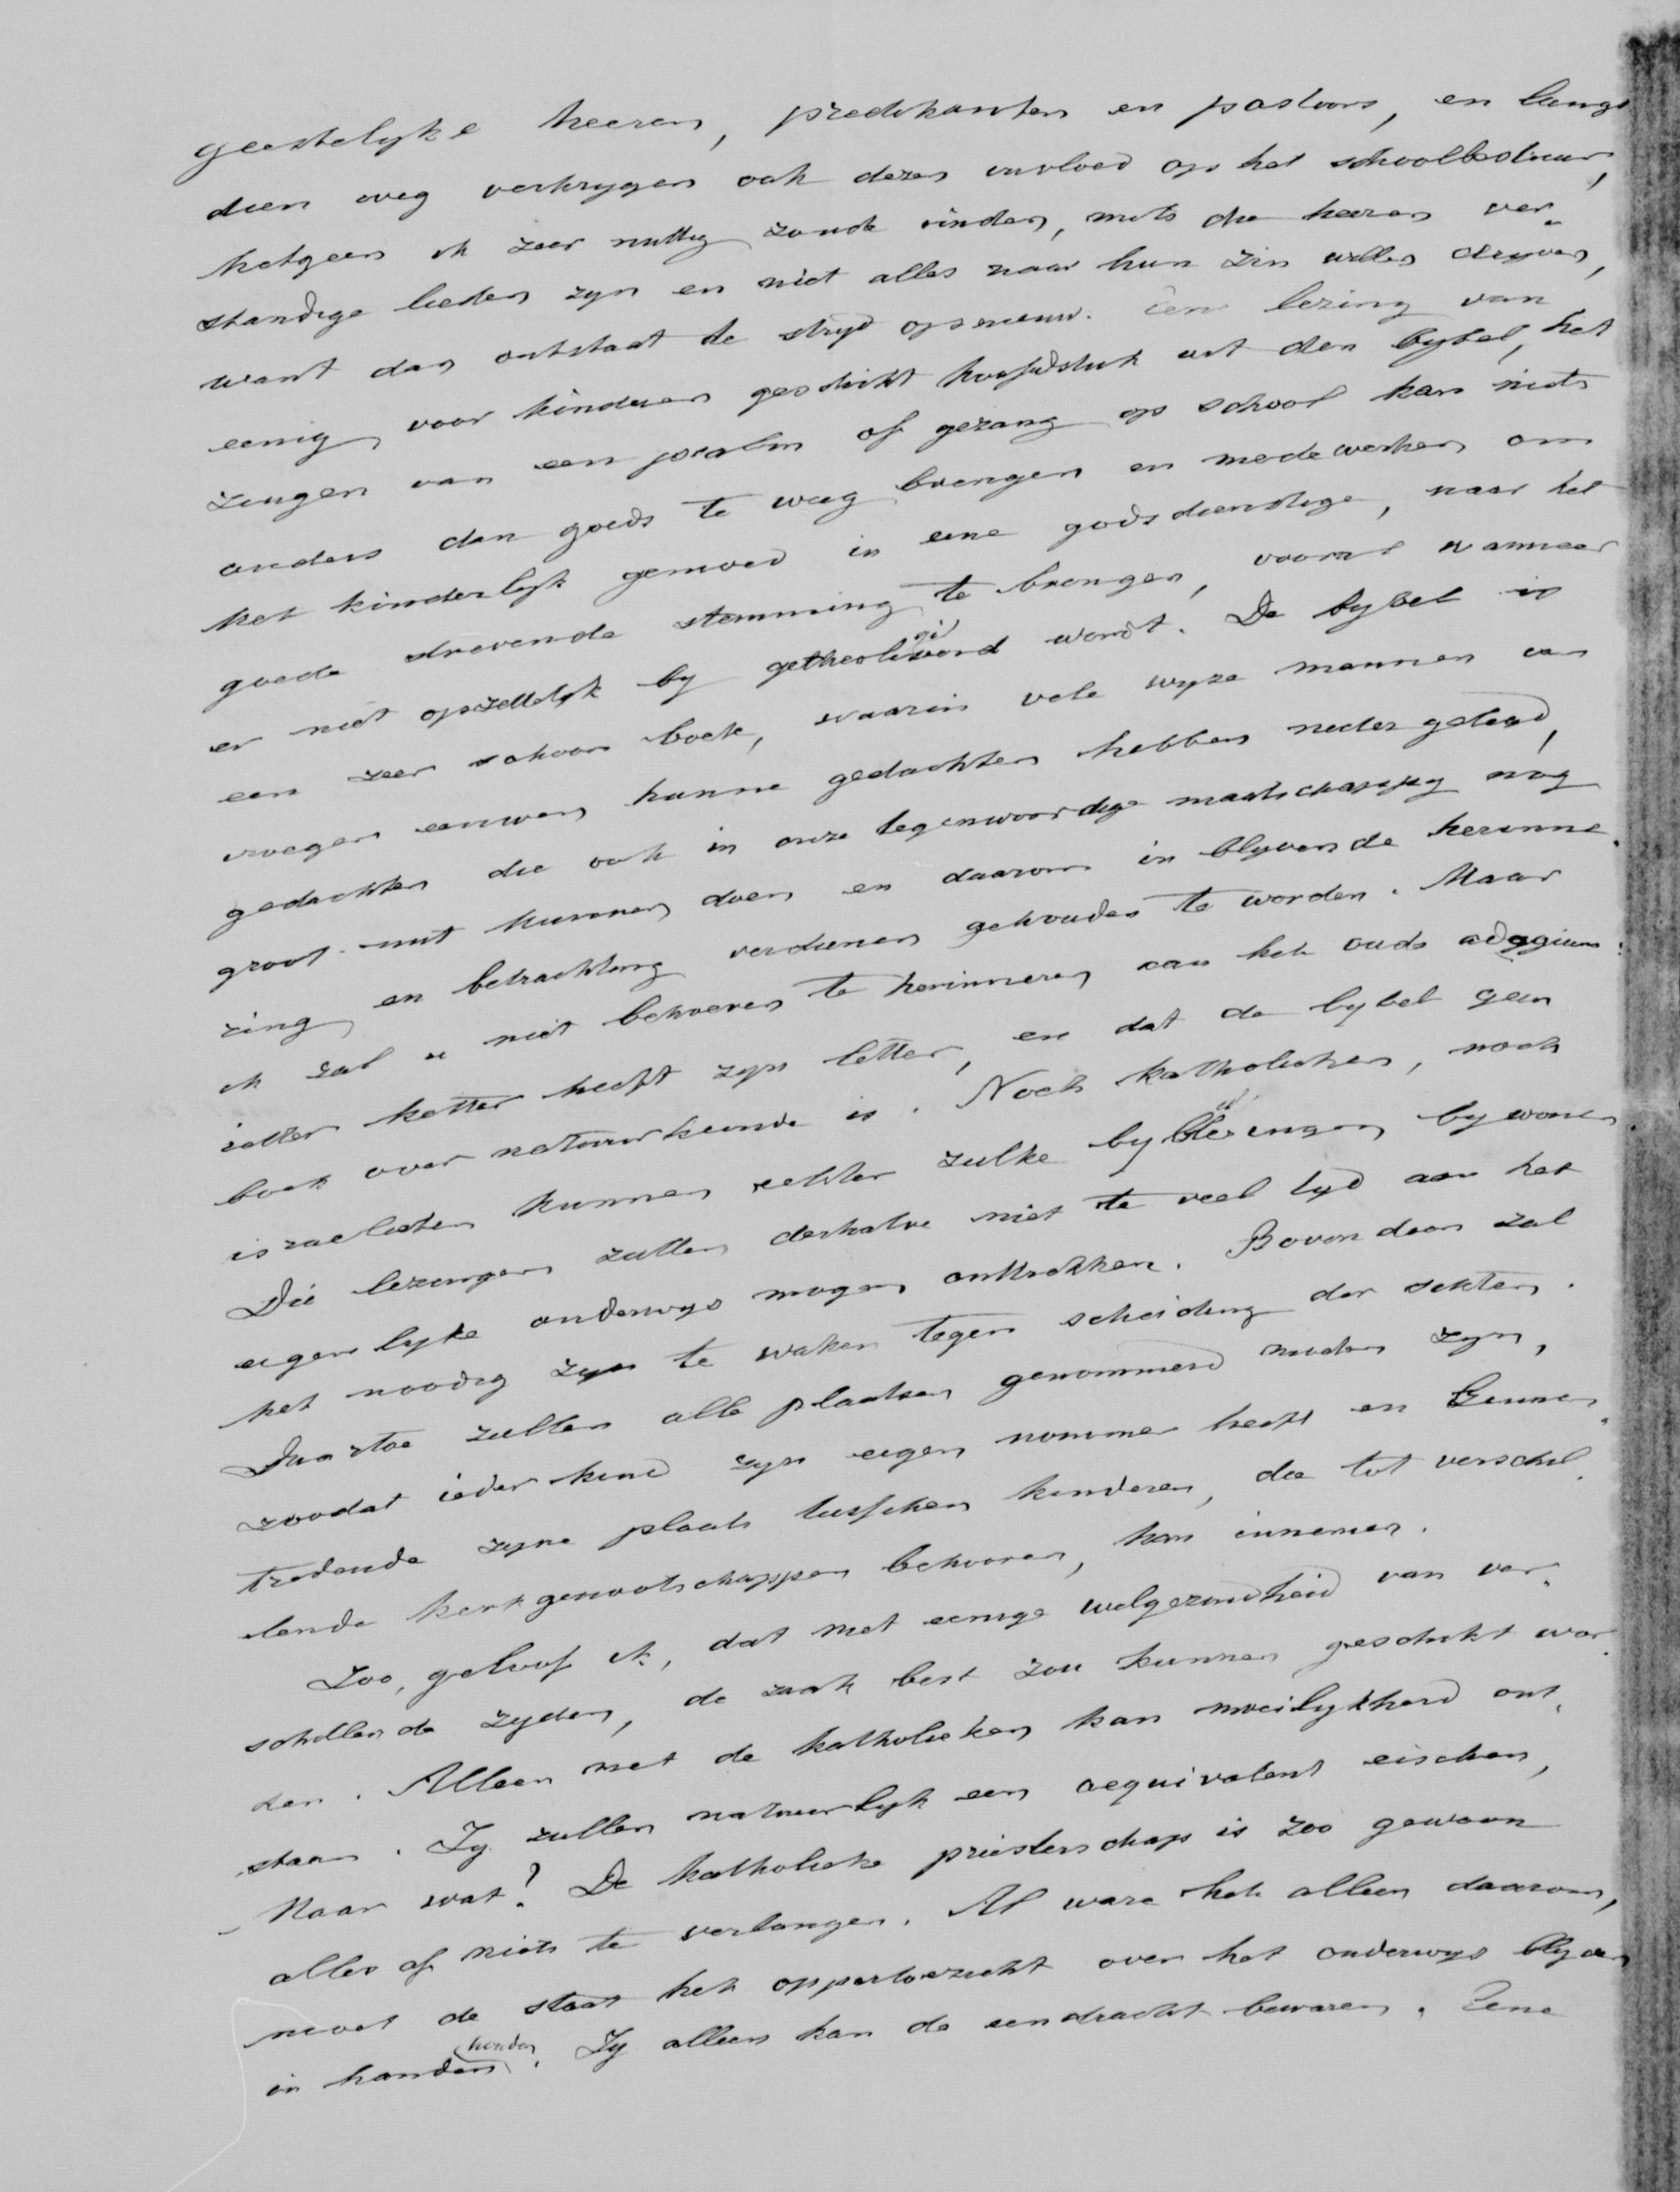 geestelyke heeren, predikanten en pastoors, en langs
dien weg verkrygen ook dezen invloed op het schoolbestuur,
hetgeen ik zeer nuttig zoude vinden, mits die heeren ver-
standige lieden zyn en niet alles naar hun zin willen dryven,
want dan ontstaat de stryd opnieuw. Eene lezing van
eenig, voor kinderen geschikt hoofdstuk uit den bybel, het
zingen van een psalm of gezang op school kan niets
anders dan goeds te weeg brengen en medewerken om
het kinderlyk gemoed in eene godsdienstige, naar het
goede strevende stemming te brengen, vooral wanneer
er niet opzettelyk by getheologiseerd wordt. De bybel is
een zeer schoon boek, waarin vele wyze mannen van
vroeger eeuwen hunne gedachten hebben nedergelegd,
gedachten die ook in onze tegenwoordige maatschappy nog
groot nut kunnen doen en daarom in blyvende herinne-
ring en betrachting verdienen gehouden te worden. Maar
ik zal u niet behoeven te herinneren aan het oude adagium:
ieder ketter heeft zyn letter, en dat de bybel geen
boek over natuurkunde is. Noch katholieken, noch
israelieten kunnen echter zulke bybellezingen bywonen.
Die lezingen zullen derhalve niet te veel tyd aan het
eigenlyke onderwys mogen onttrekken. Bovendien zal
het noodig zyn te waken tegen scheiding der sekten.
Daartoe zullen alle plaatsen genommerd moeten zyn,
zoodat ieder kind zyn eigen nommer heeft en binnen-
tredende zyne plaats tusschen kinderen, die tot verschil-
lende kerkgenootschappen behooren, kan innemen.
Zoo, geloof ik, dat met eenige welgezindheid van ver-
schillende zyden, de zaak best zou kunnen geschikt wor-
den. Alleen met de katholieken kan moeilykheid ont-
staan. Zy zullen natuurlyk een aequivalent eischen,
Maar wat? De katholieke priesterschap is zoo gewoon
alles of niets te verlangen. Al ware het alleen daarom,
moet de staat het oppertoezicht over het onderwys blyven
in handen houden. Zy alleen kan de eendracht bewaren. Eene